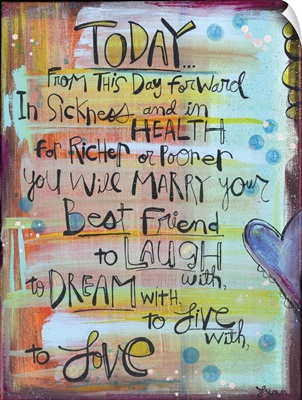 TODAY...
From This Day Forward
In Sickness and in
HEALTH
for Richer or Pooner
you will MARRY your
Best Friend
to LAUGH
with,
to DREAM with,
to live
with,
to Love